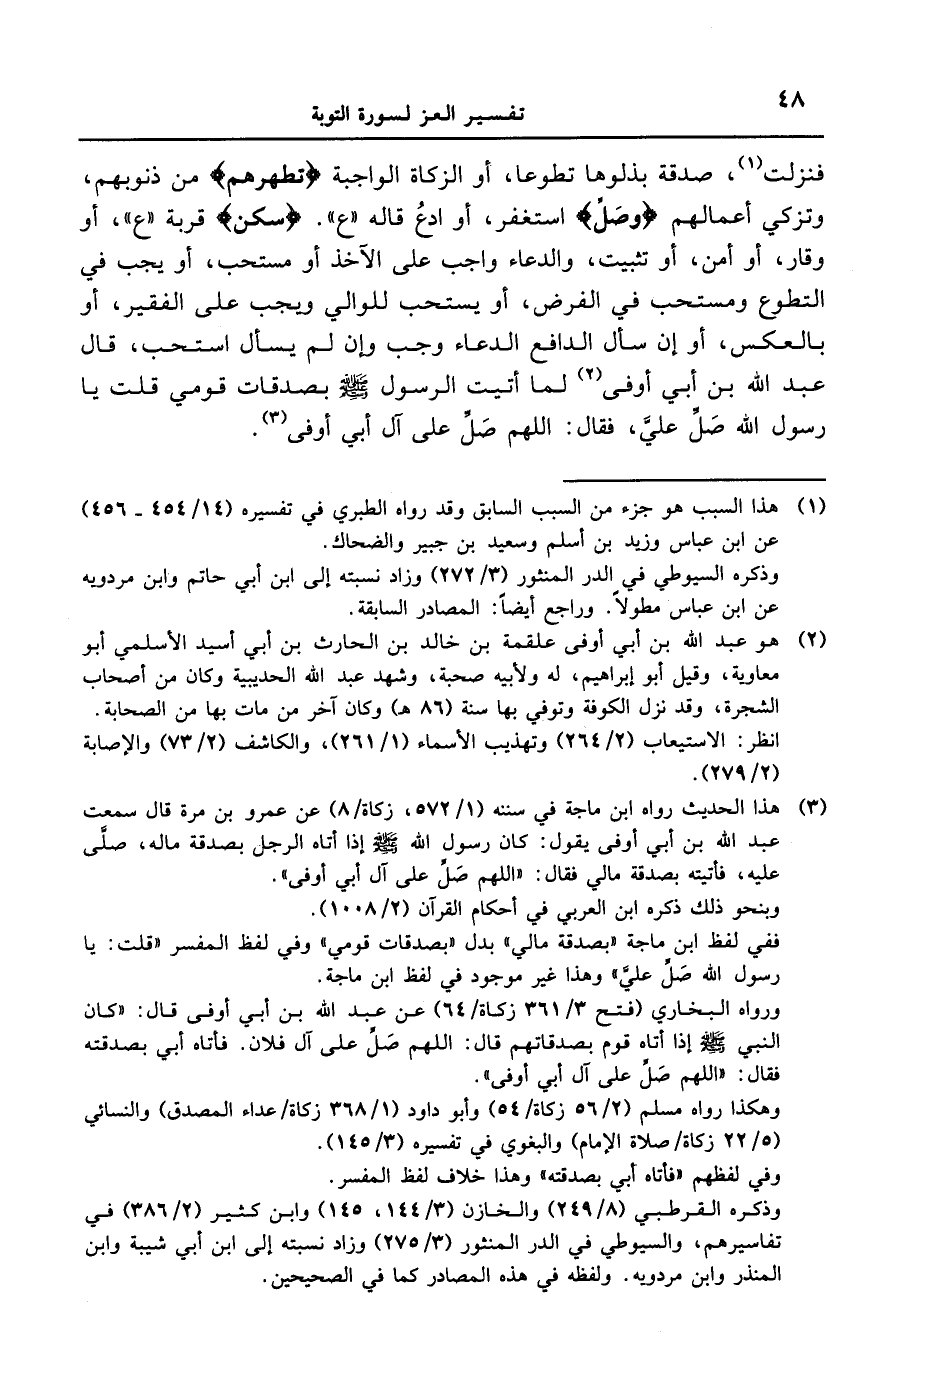 ٤٨
تفسير العز لسورة التوبة
فنزلت(١)، صدقة بذلوها تطوعا، أو الزكاة الواجبة ﴿تطهرهم﴾ من ذنوبهم،
وتزكي أعمالهم ﴿وصَلِّ﴾ استغفر، أو ادعُ قاله «ع». ﴿سكن﴾ قربة «ع»، أو
وقار، أو أمن، أو تثبيت، والدعاء واجب على الآخذ أو مستحب، أو يجب في
التطوع ومستحب في الفرض، أو يستحب للوالي ويجب على الفقير، أو
بالعكس، أو إن سأل الدافع الدعاء وجب وإن لم يسأل استحب، قال
عبد الله بن أبي أوفى(٢) لما أتيت الرسول ﷺ بصدقات قومي قلت يا
رسول الله صَلِّ عليَّ، فقال: اللهم صَلِّ على آل أبي أوفى(٣).
(١) هذا السبب هو جزء من السبب السابق وقد رواه الطبري في تفسيره (١٤/ ٤٥٤ ـ ٤٥٦)
عن ابن عباس وزيد بن أسلم وسعيد بن جبير والضحاك.
وذكره السيوطي في الدر المنثور (٣/ ٢٧٢) وزاد نسبته إلى ابن أبي حاتم وابن مردويه
عن ابن عباس مطولاً. وراجع أيضاً: المصادر السابقة.
(٢) هو عبد الله بن أبي أوفى علقمة بن خالد بن الحارث بن أبي أسيد الأسلمي أبو
معاوية، وقيل أبو إبراهيم، له ولأبيه صحبة، وشهد عبد الله الحديبية وكان من أصحاب
الشجرة، وقد نزل الكوفة وتوفي بها سنة (٨٦ هـ) وكان آخر من مات بها من الصحابة.
انظر: الاستيعاب (٢/ ٢٦٤) وتهذيب الأسماء (١/ ٢٦١)، والكاشف (٢/ ٧٣) والإصابة
(٢/ ٢٧٩).
(٣) هذا الحديث رواه ابن ماجة في سننه (١/ ٥٧٢، زكاة/ ٨) عن عمرو بن مرة قال سمعت
عبد الله بن أبي أوفى يقول: كان رسول الله ﷺ إذا أتاه الرجل بصدقة ماله، صلَّى
عليه، فأتيته بصدقة مالي فقال: «اللهم صَلِّ على آل أبي أوفى».
وبنحو ذلك ذكره ابن العربي في أحكام القرآن (٢/ ١٠٠٨).
ففي لفظ ابن ماجة «بصدقة مالي» بدل «بصدقات قومي» وفي لفظ المفسر «قلت: يا
رسول الله صَلِّ عليَّ» وهذا غير موجود في لفظ ابن ماجة.
ورواه البخاري (فتح ٣/ ٣٦١ زكاة/ ٦٤) عن عبد الله بن أبي أوفى قال: «كان
النبي ﷺ إذا أتاه قوم بصدقاتهم قال: اللهم صَلِّ على آل فلان. فأتاه أبي بصدقته
فقال: «اللهم صَلِّ على آل أبي أوفى».
وهكذا رواه مسلم (٢/ ٥٦ زكاة/ ٥٤) وأبو داود (١/ ٣٦٨ زكاة/ عداء المصدق) والنسائي
(٥/ ٢٢ زكاة/ صلاة الإمام) والبغوي في تفسيره (٣/ ١٤٥).
وفي لفظهم «فأتاه أبي بصدقته» وهذا خلاف لفظ المفسر.
وذكره القرطبي (٨/ ٢٤٩) والخازن (٣/ ١٤٤، ١٤٥) وابن كثير (٢/ ٣٨٦) في
تفاسيرهم، والسيوطي في الدر المنثور (٣/ ٢٧٥) وزاد نسبته إلى ابن أبي شيبة وابن
المنذر وابن مردويه. ولفظه في هذه المصادر كما في الصحيحين.